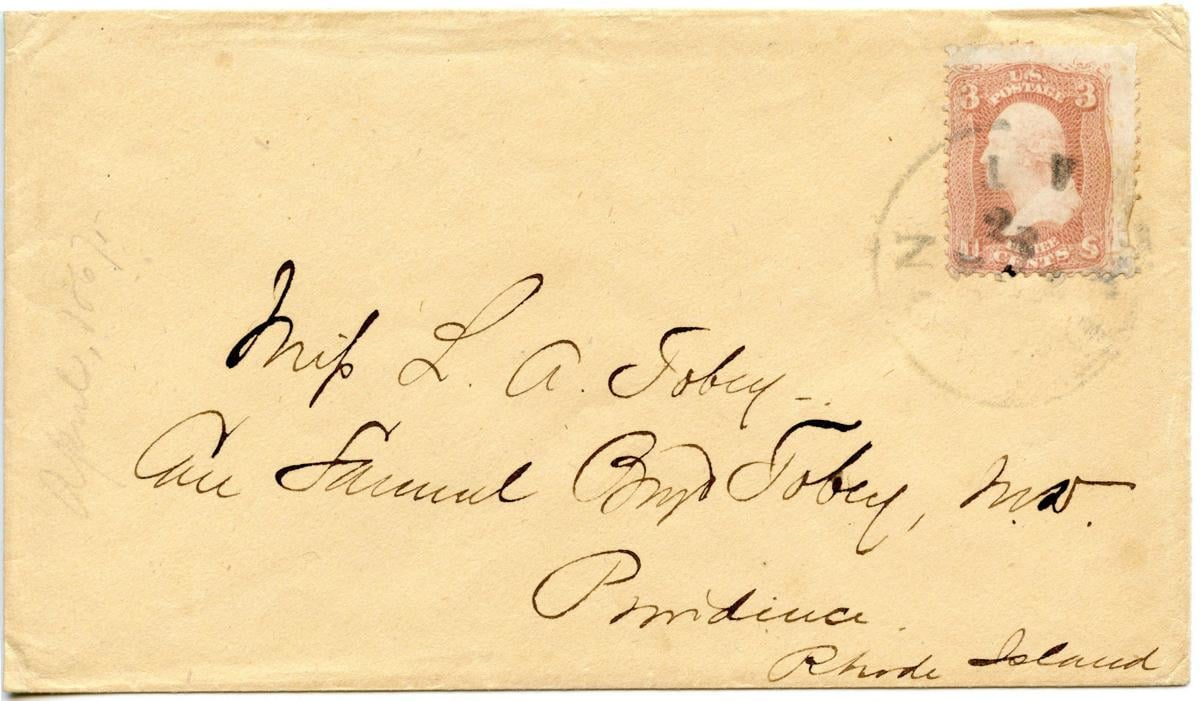 U.S.
POSTAGE
3 3
THREE
CENTS
N
2
Miss L. A. Tobey
Care Samuel Boyd Tobey, M.D.
Providence
Rhode Island
April, 1867